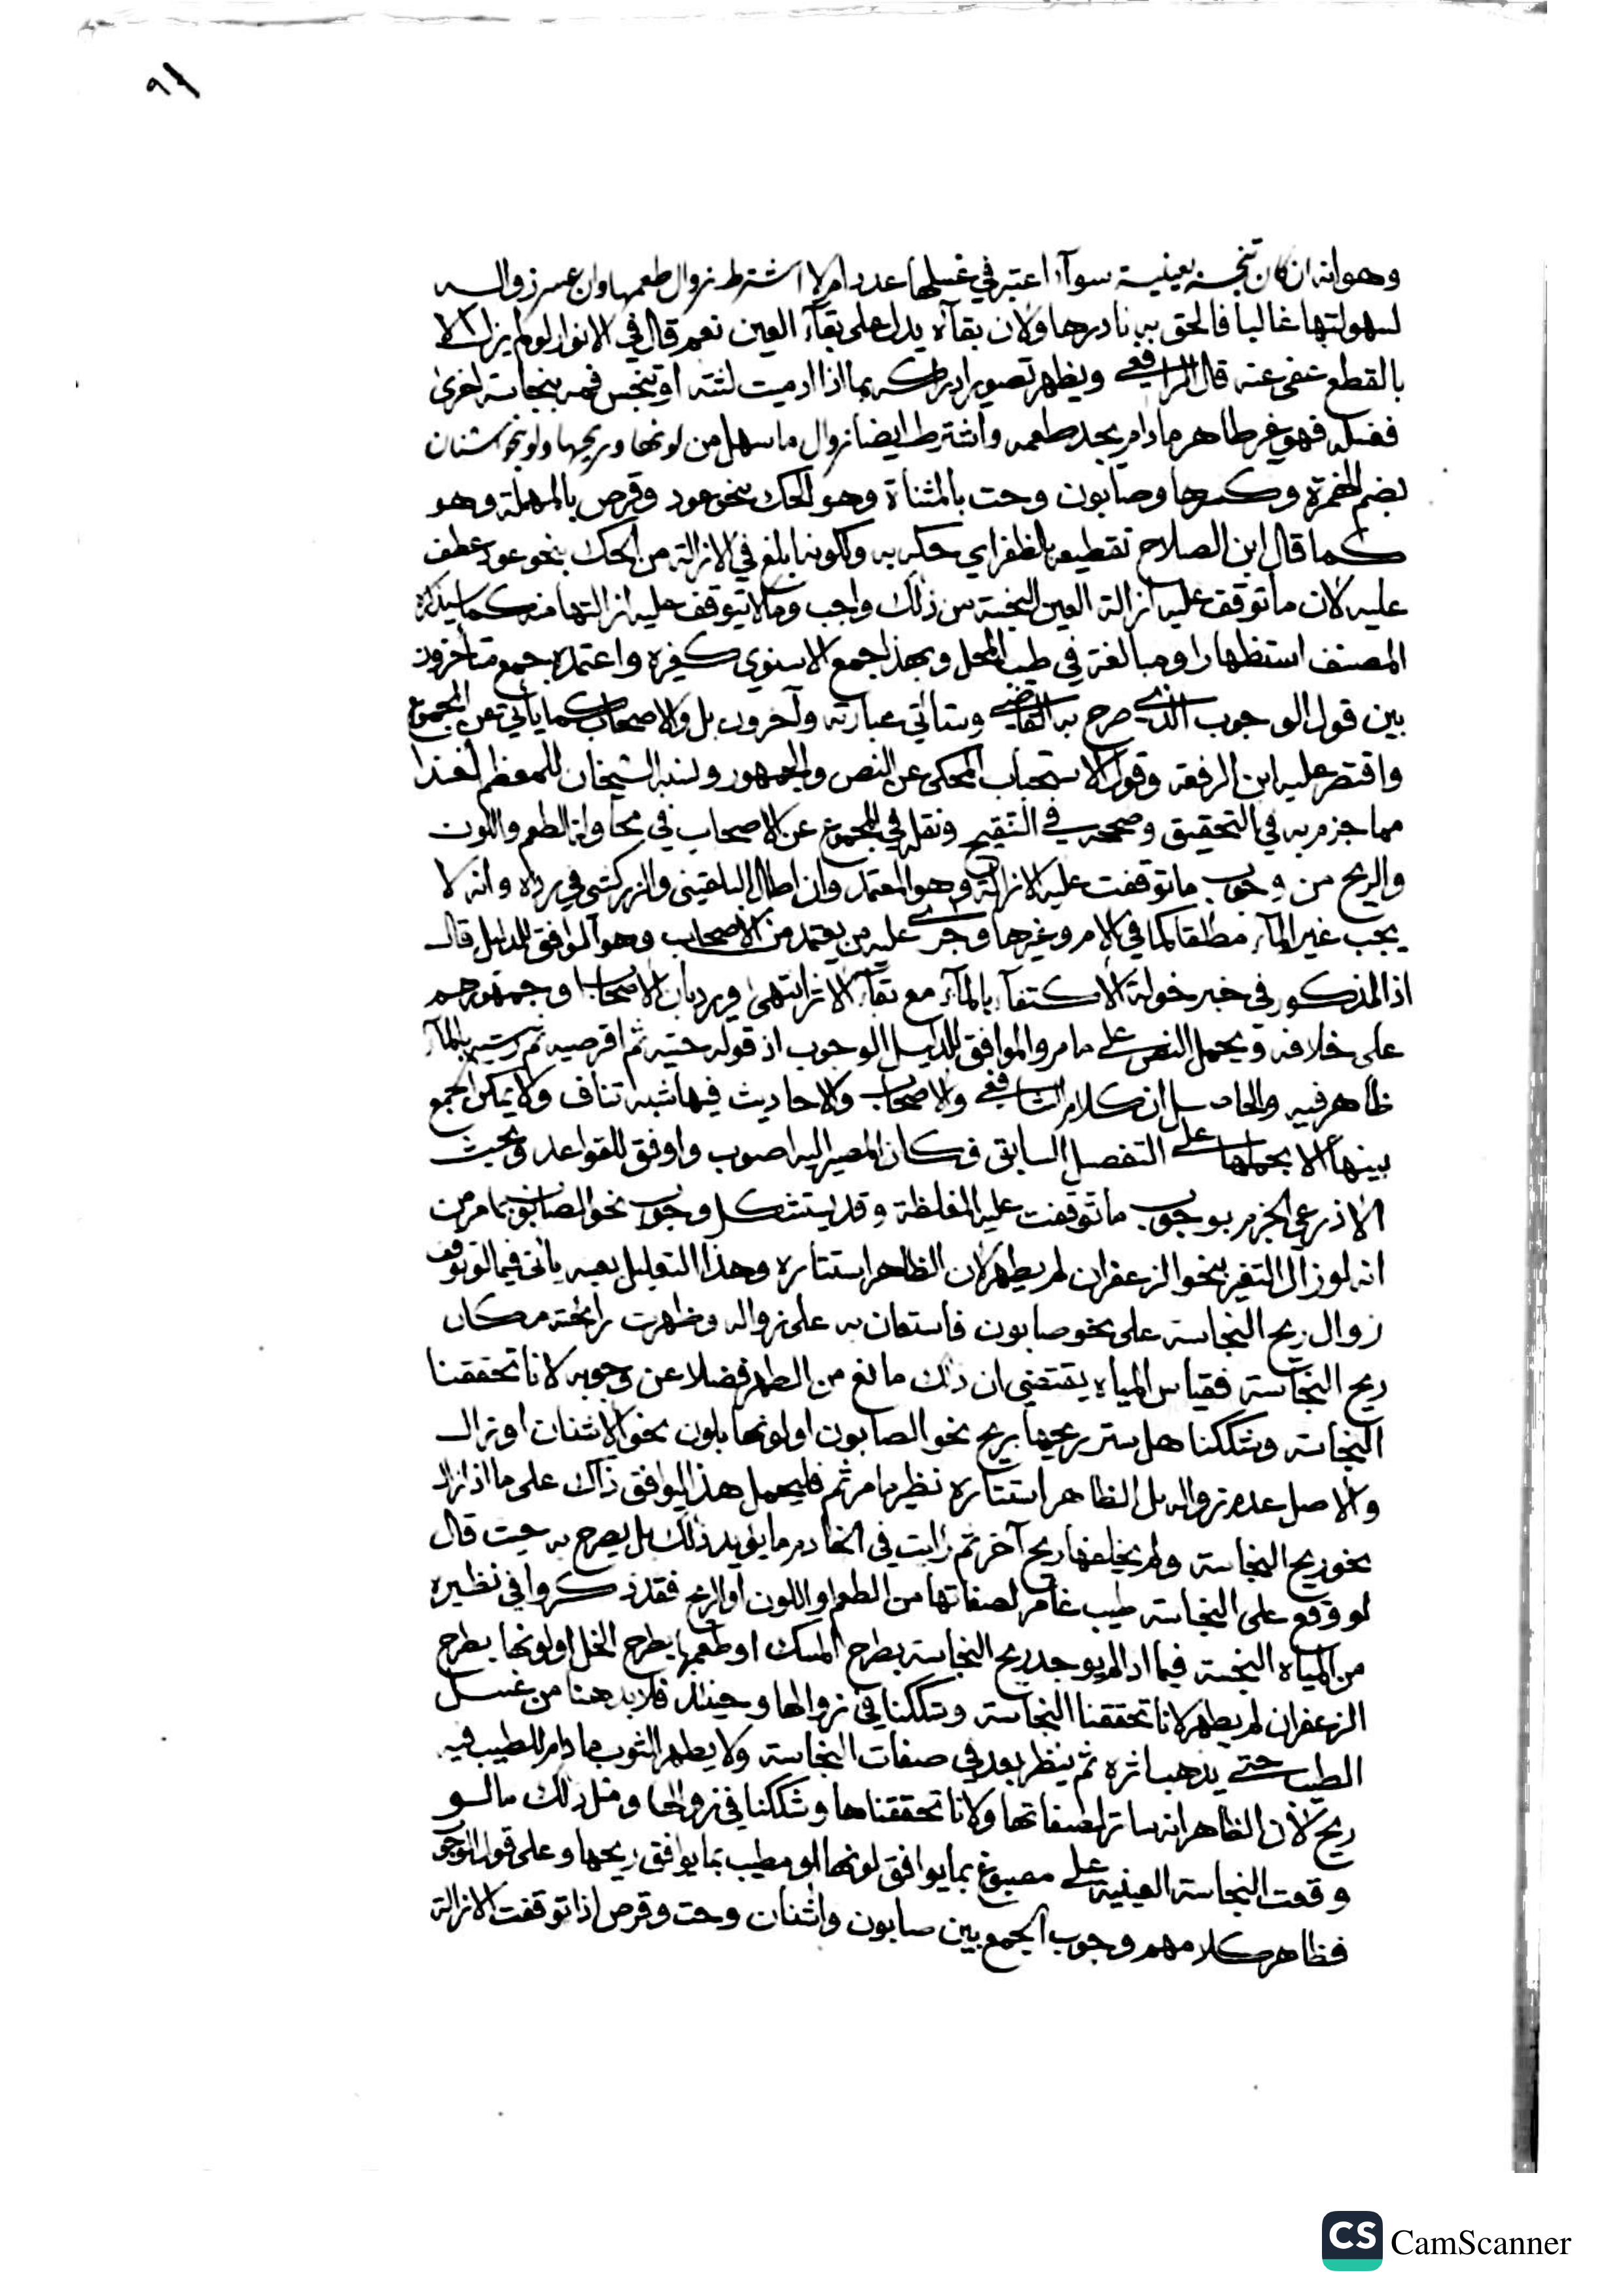 ٩٦
وهو انه ان كان تنجسه بعينية سوآء اعتبر في غسلها عدد ام لا اشترط زوال طعمها وان عسر زواله
لسهولتها غالبا فالحق به نادرها ولان بقآءه يدل على بقآء العين نعم قال في الانوار لو لم يزل الا
بالقطع عفى عنه قال الرافعي ويظهر تصوير ادراكه بما اذا ادميت لثته او تنجس فمه بنجاسة اخرى
فغسله فهو غير طاهر ما دام يجد طعمه واشترط ايضا زوال ما سهل من لونها وريحها ولو بنحو اشنان
بضم الهمزة وكسرها وصابون وحت بالمثناة وهو الحك بنحو عود وقرص بالمهملة وهو
كما قال ابن الصلاح تقطيعه بالظفر اي حكه به ولكونه ابلغ في الازالة من الحك بنحو عود عطف
عليه لان ما توقف عليه ازالة العين النجسة من ذلك واجب وما لا يتوقف عليه ازالتها منه كما سيذكره
المصنف استظهارا ومبالغة في طيب المحل وبهذا جمع الاسنوي كغيره واعتمده جمع متأخرون
بين قول الوجوب الذي صرح به القاضي وستأتي عبارته وآخرون بل والاصحاب كما يأتي عن المجموع
واقتصر عليه ابن الرفعة وقول الاستحباب المحكى عن النص والجمهور ونسبه الشيخان للمعظم اخذا
مما جزم به في التحقيق وصححه في التنقيح ونقله في المجموع عن الاصحاب في محاولة الطعم واللون
والريح من وجوب ما توقفت عليه الازالة وهو المعتمد وان اطال البلقيني والزركشي في رده وانه لا
يجب غير المآء مطلقا كما في الام وغيرها وجرى عليه من يعتمد من الاصحاب وهو الموافق للدليل قال
اذ المذكور في خبر خولة الاكتفآء بالمآء مع بقآء الاثر انتهى ويرد بان الاصحاب وجمهورهم
على خلافه ويحمل النص على ما مر والموافق للدليل الوجوب اذ قوله حتيه ثم اقرصيه ثم رشيه بالمآء
ظاهر فيه والحاصل ان كلام الشافعي والاصحاب والاحاديث فيها شبه تناف ولا يمكن الجمع
بينها الا بحملها على التفصيل السابق فكان المصير اليه اصوب واوفق للقواعد وبحث
الاذرعي الجزم بوجوب ما توقفت عليه المغلظة وقد يستشكل وجوب نحو الصابون بما مر من
انه لو زال التغير بنحو الزعفران لم يطهر لان الظاهر استتاره وهذا التعليل بعينه يأتي فيما لو توقف
زوال ريح النجاسة على نحو صابون فاستعان به على زواله وظهرت رائحته مكان
ريح النجاسة فقياس المياه يقتضي ان ذلك مانع من الطهر فضلا عن وجوبه لانا تحققنا
النجاسة وشككنا هل ستر ريحها بريح نحو الصابون او لونها بلون نحو الاشنان او زال
والاصل عدم زواله بل الظاهر استتاره نظير ما مر ثم فليحمل هذا ليوافق ذاك على ما اذا زال
نحو ريح النجاسة ولم يخلفها ريح آخر ثم رايت في الخادم ما يؤيد ذلك بل يصرح به حيث قال
لو وقع على النجاسة طيب غامر لصفاتها من الطعم او اللون او الريح فقد ذكروا في نظيره
من المياه النجسة فيما اذا لم يوجد ريح النجاسة بطرح المسك او طعمها بطرح الخل او لونها بطرح
الزعفران لم يطهر لانا تحققنا النجاسة وشككنا في زوالها وحينئذ فلا بد هنا من غسل
الطيب حتى يذهب اثره ثم ينظر بعد في صفات النجاسة ولا يطهر الثوب ما دام للطيب فيه
ريح لان الظاهر انه ساتر لصفاتها ولانا تحققناها وشككنا في زوالها ومثل ذلك ما لو
وقعت النجاسة العينية على مصبوغ بما يوافق لونها او مطيب بما يوافق ريحها وعلى قول الوجوب
فظاهر كلامهم وجوب الجمع بين صابون واشنان وحت وقرص اذا توقفت الازالة
CS CamScanner